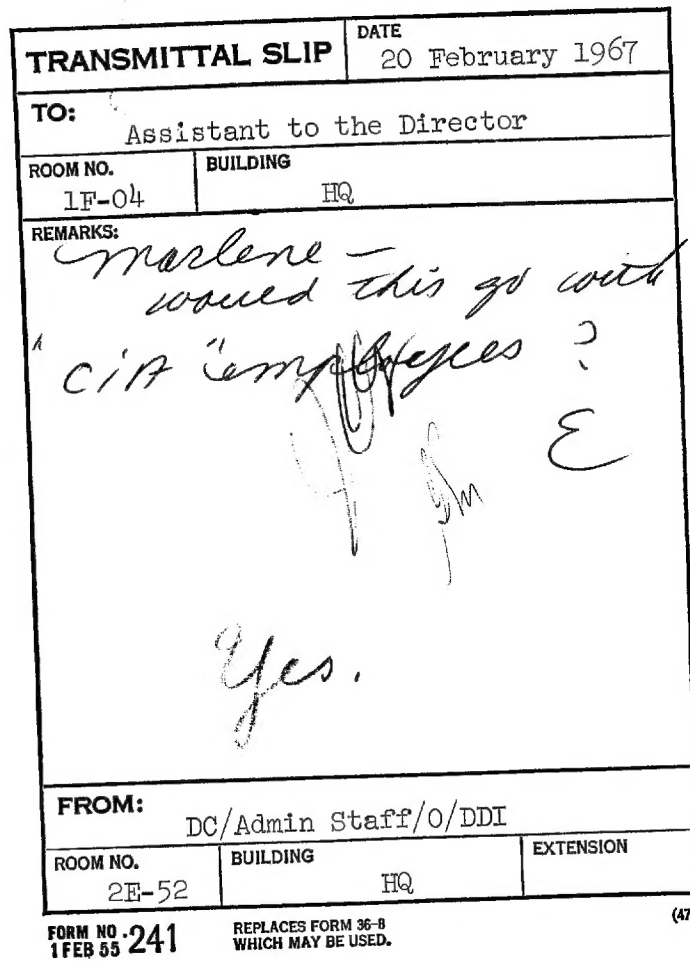 TRANSMITTAL SLIP
DATE
20 February 1967
TO:
Assistant to the Director
ROOM NO.
1F-04
BUILDING
HQ
REMARKS:
Marlene -
would this go with
"CIA "employees ?
E
Yes.
FROM:
DC/Admin Staff/O/DDI
ROOM NO.
2E-52
BUILDING
HQ
EXTENSION
FORM NO. 241
1 FEB 55
REPLACES FORM 36-8
WHICH MAY BE USED.
(47